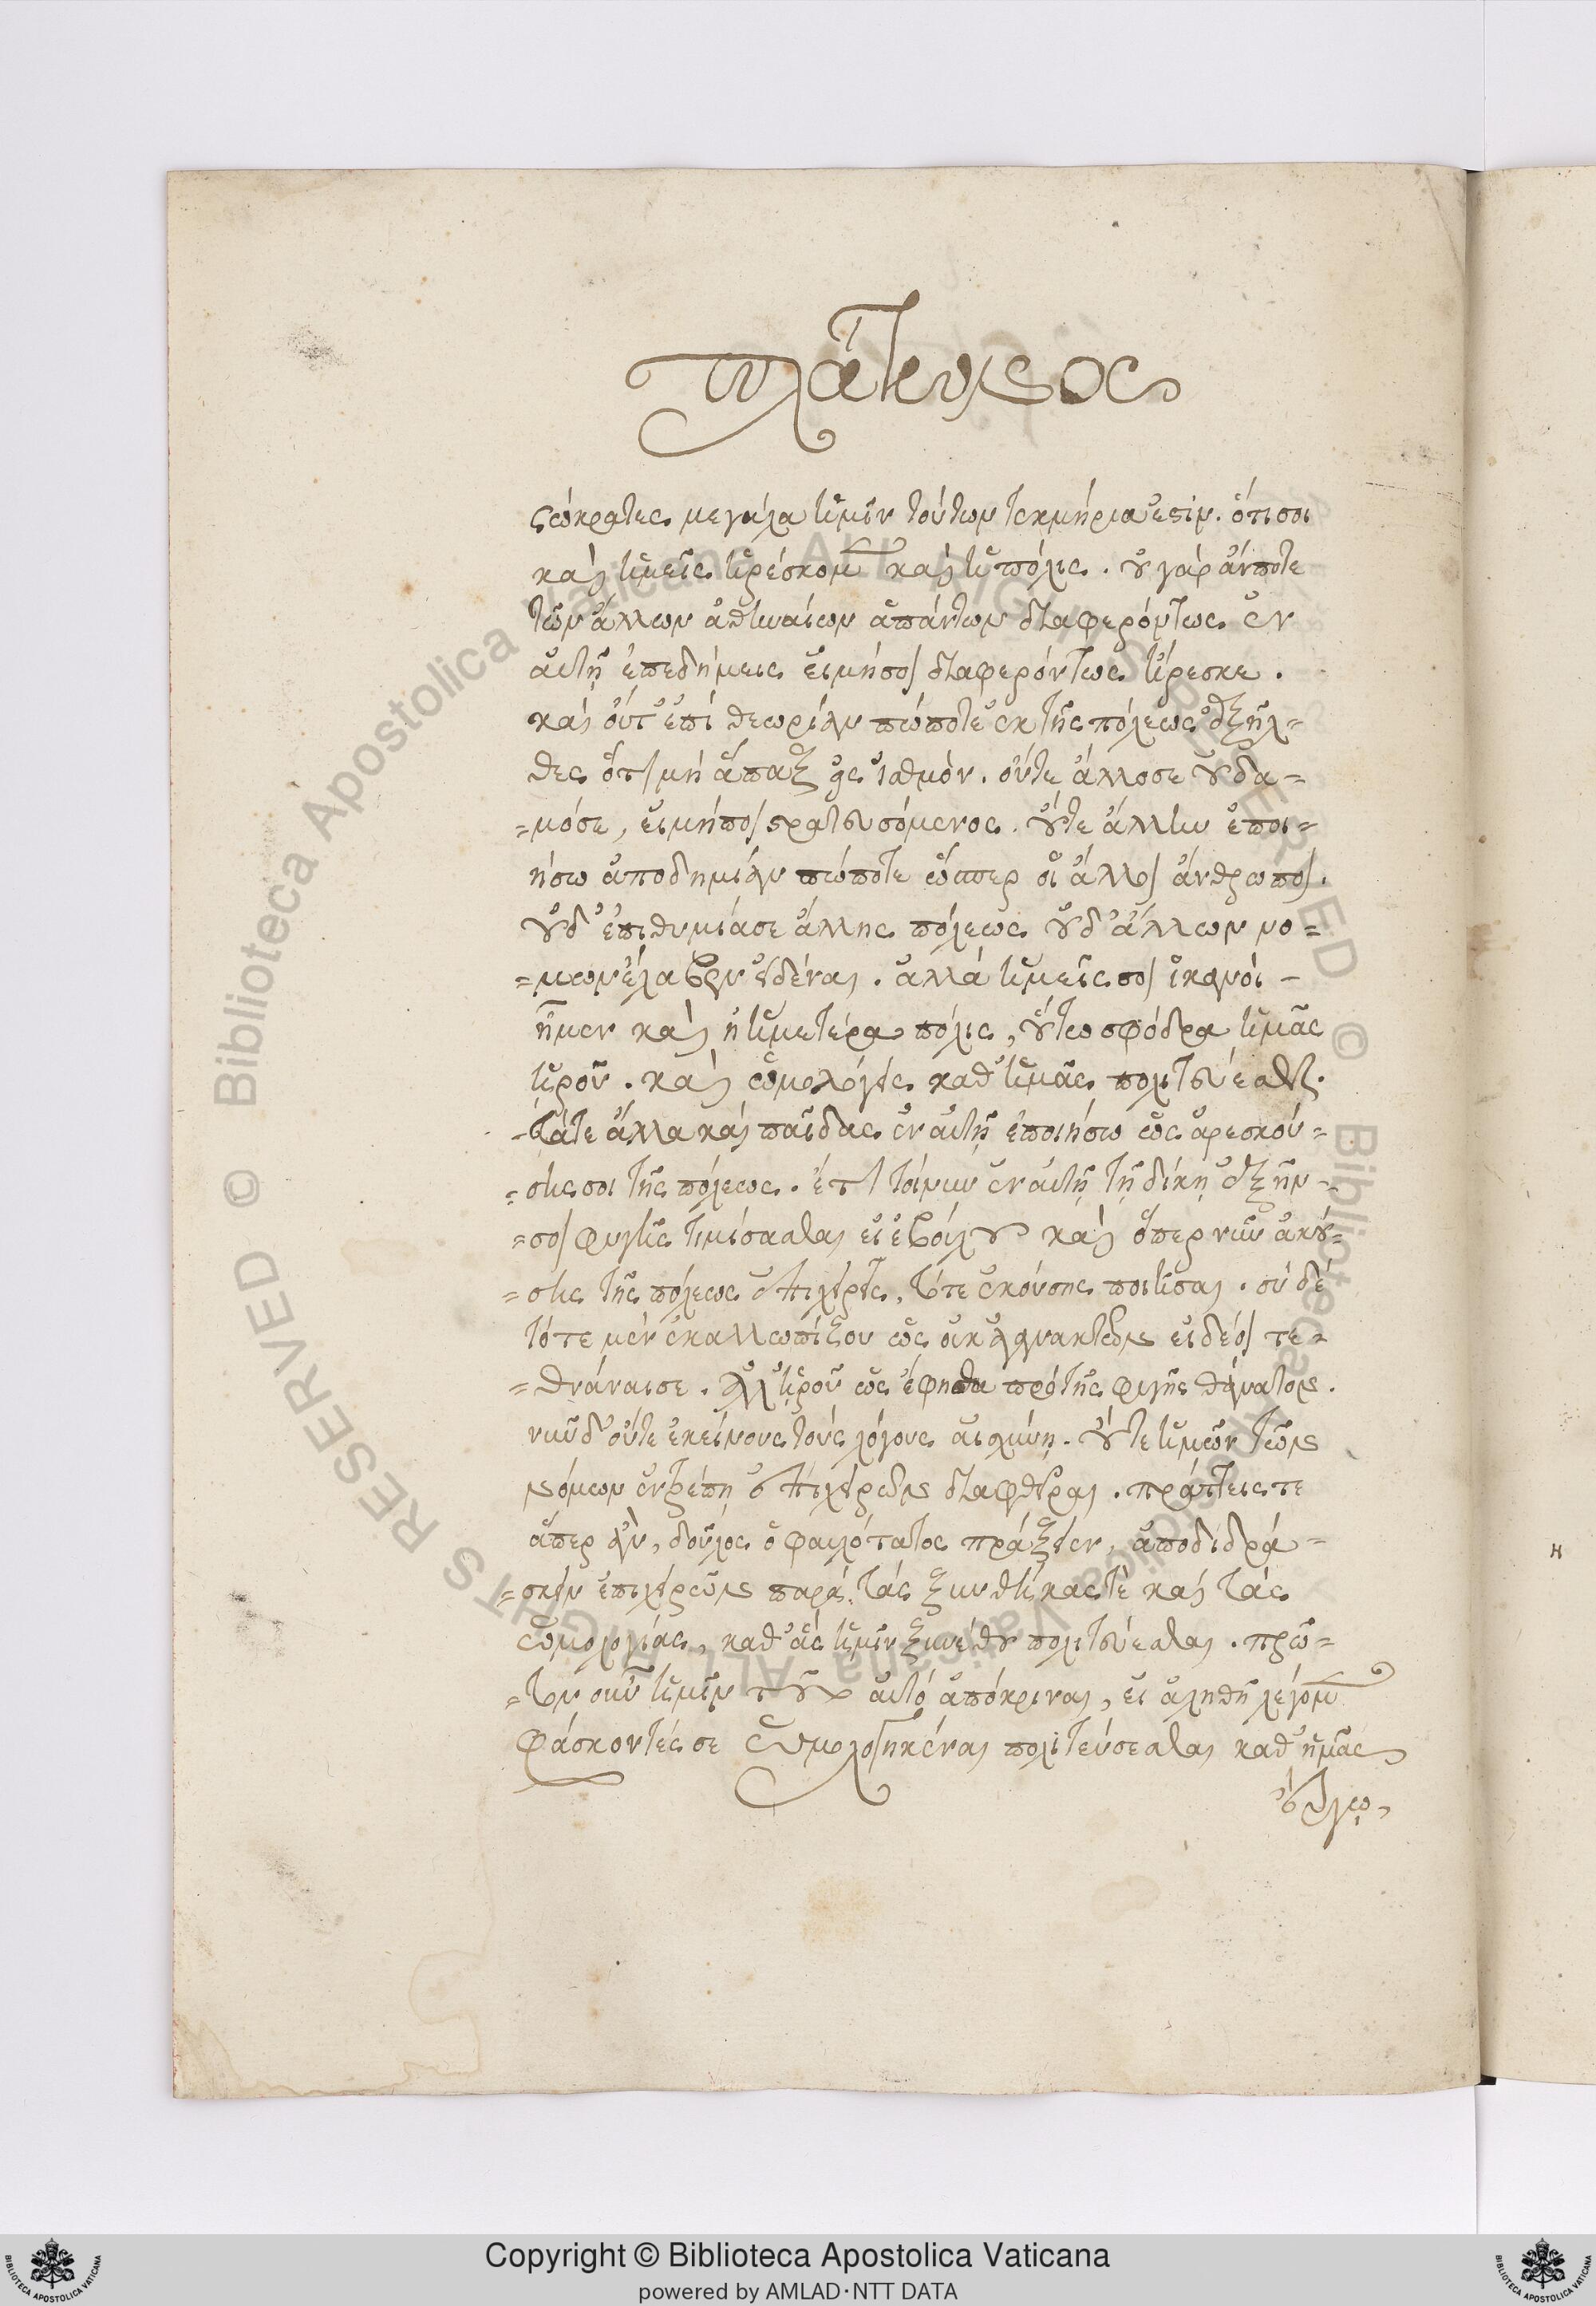 πλάτωνος
σώκρατες μεγάλα ἡμῖν τούτων τεκμήρια ἐστίν. ὅτι σοι
καὶ ἡμεῖς ἠρέσκομεν καὶ ἡ πόλις. οὐ γὰρ ἄν ποτε
τῶν ἄλλων ἀθηναίων ἁπάντων διαφερόντως ἐν
αὐτῇ ἐπεδήμεις εἰ μή σοι διαφερόντως ἤρεσκε.
καὶ οὔτ' ἐπὶ θεωρίαν πώποτε ἐκ τῆς πόλεως ἐξῆλ=
θες ὅτι μὴ ἅπαξ εἰς ἰσθμόν. οὔτε ἄλλοσε οὐδα=
=μόσε, εἰ μή ποι στρατευσόμενος. οὔτε ἄλλην ἐποι=
ήσω ἀποδημίαν πώποτε ὥσπερ οἱ ἄλλοι ἄνθρωποι.
οὐδ' ἐπιθυμία σε ἄλλης πόλεως οὐδ' ἄλλων νό=
=μων ἔλαβεν εἰδέναι. ἀλλὰ ἡμεῖς σοι ἱκανοὶ -
ἦμεν καὶ ἡ ἡμετέρα πόλις, οὕτω σφόδρα ἡμᾶς
ἡροῦ. καὶ ὡμολόγεις καθ' ἡμᾶς πολιτεύεσθαι.
τά τε ἄλλα καὶ παῖδας ἐν αὐτῇ ἐποιήσω ὡς ἀρεσκού=
=σης σοι τῆς πόλεως. ἔτι τοίνυν ἐν αὐτῇ τῇ δίκῃ ἐξῆν
=σοι φυγῆς τιμήσασθαι εἰ ἐβούλου καὶ ὅπερ νῦν ἀκού=
=σης τῆς πόλεως ἐπιχειρεῖς, τότε ἑκούσης ποιῆσαι. σὺ δὲ
τότε μὲν ἐκαλλωπίζου ὡς οὐκ ἀγανακτῶν εἰ δέοι τε=
=θνάναι σε. ἀλλ' ᾑροῦ ὡς ἔφησθα πρὸ τῆς φυγῆς θάνατον.
νῦν δ' οὔτε ἐκείνους τοὺς λόγους αἰσχύνῃ. οὔτε ἡμῶν τῶν
νόμων ἐντρέπῃ ἐπιχειρῶν διαφθεῖραι. πράττεις τε
ἅπερ ἂν, δοῦλος ὁ φαυλότατος πράξειεν, ἀποδιδρά=
=σκειν ἐπιχειρῶν παρὰ τὰς ξυνθήκας τὲ καὶ τὰς
ὁμολογίας, καθ' ἃς ἡμῖν ξυνέθου πολιτεύεσθαι. πρῶ=
=τον οὖν ἡμῖν τοῦτ' αὐτὸ ἀπόκριναι, εἰ ἀληθῆ λέγομεν
φάσκοντές σε ὡμολογηκέναι πολιτεύσεσθαι καθ' ἡμᾶς
ἔργῳ,